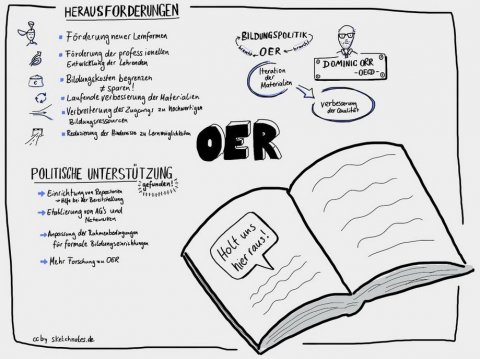 HERAUSFORDERUNGEN
Förderung neuer Lernformen
Förderung der professionellen
Entwicklung der Lehrenden
Bildungskosten begrenzen
≠ sparen!
Laufende Verbesserung der Materialien
Verbreiterung des Zugangs zu hochwertigen
Bildungsressourcen
Reduzierung der Barrieren zu Lernmöglichkeiten
POLITISCHE UNTERSTÜTZUNG
gefunden!
Einrichtung von Repositorien
→ Hilfe bei der Bereitstellung
Etablierung von AG's und
Netzwerken
Anpassung der Rahmenbedingungen
für formale Bildungseinrichtungen
Mehr Forschung zu OER
cc by sketchnotes.de
BILDUNGSPOLITIK
braucht OER braucht
DOMINIC ORR
-OECD-
Iteration
der
Materialien
Verbesserung
der Qualität
OER
Holt uns
hier raus!